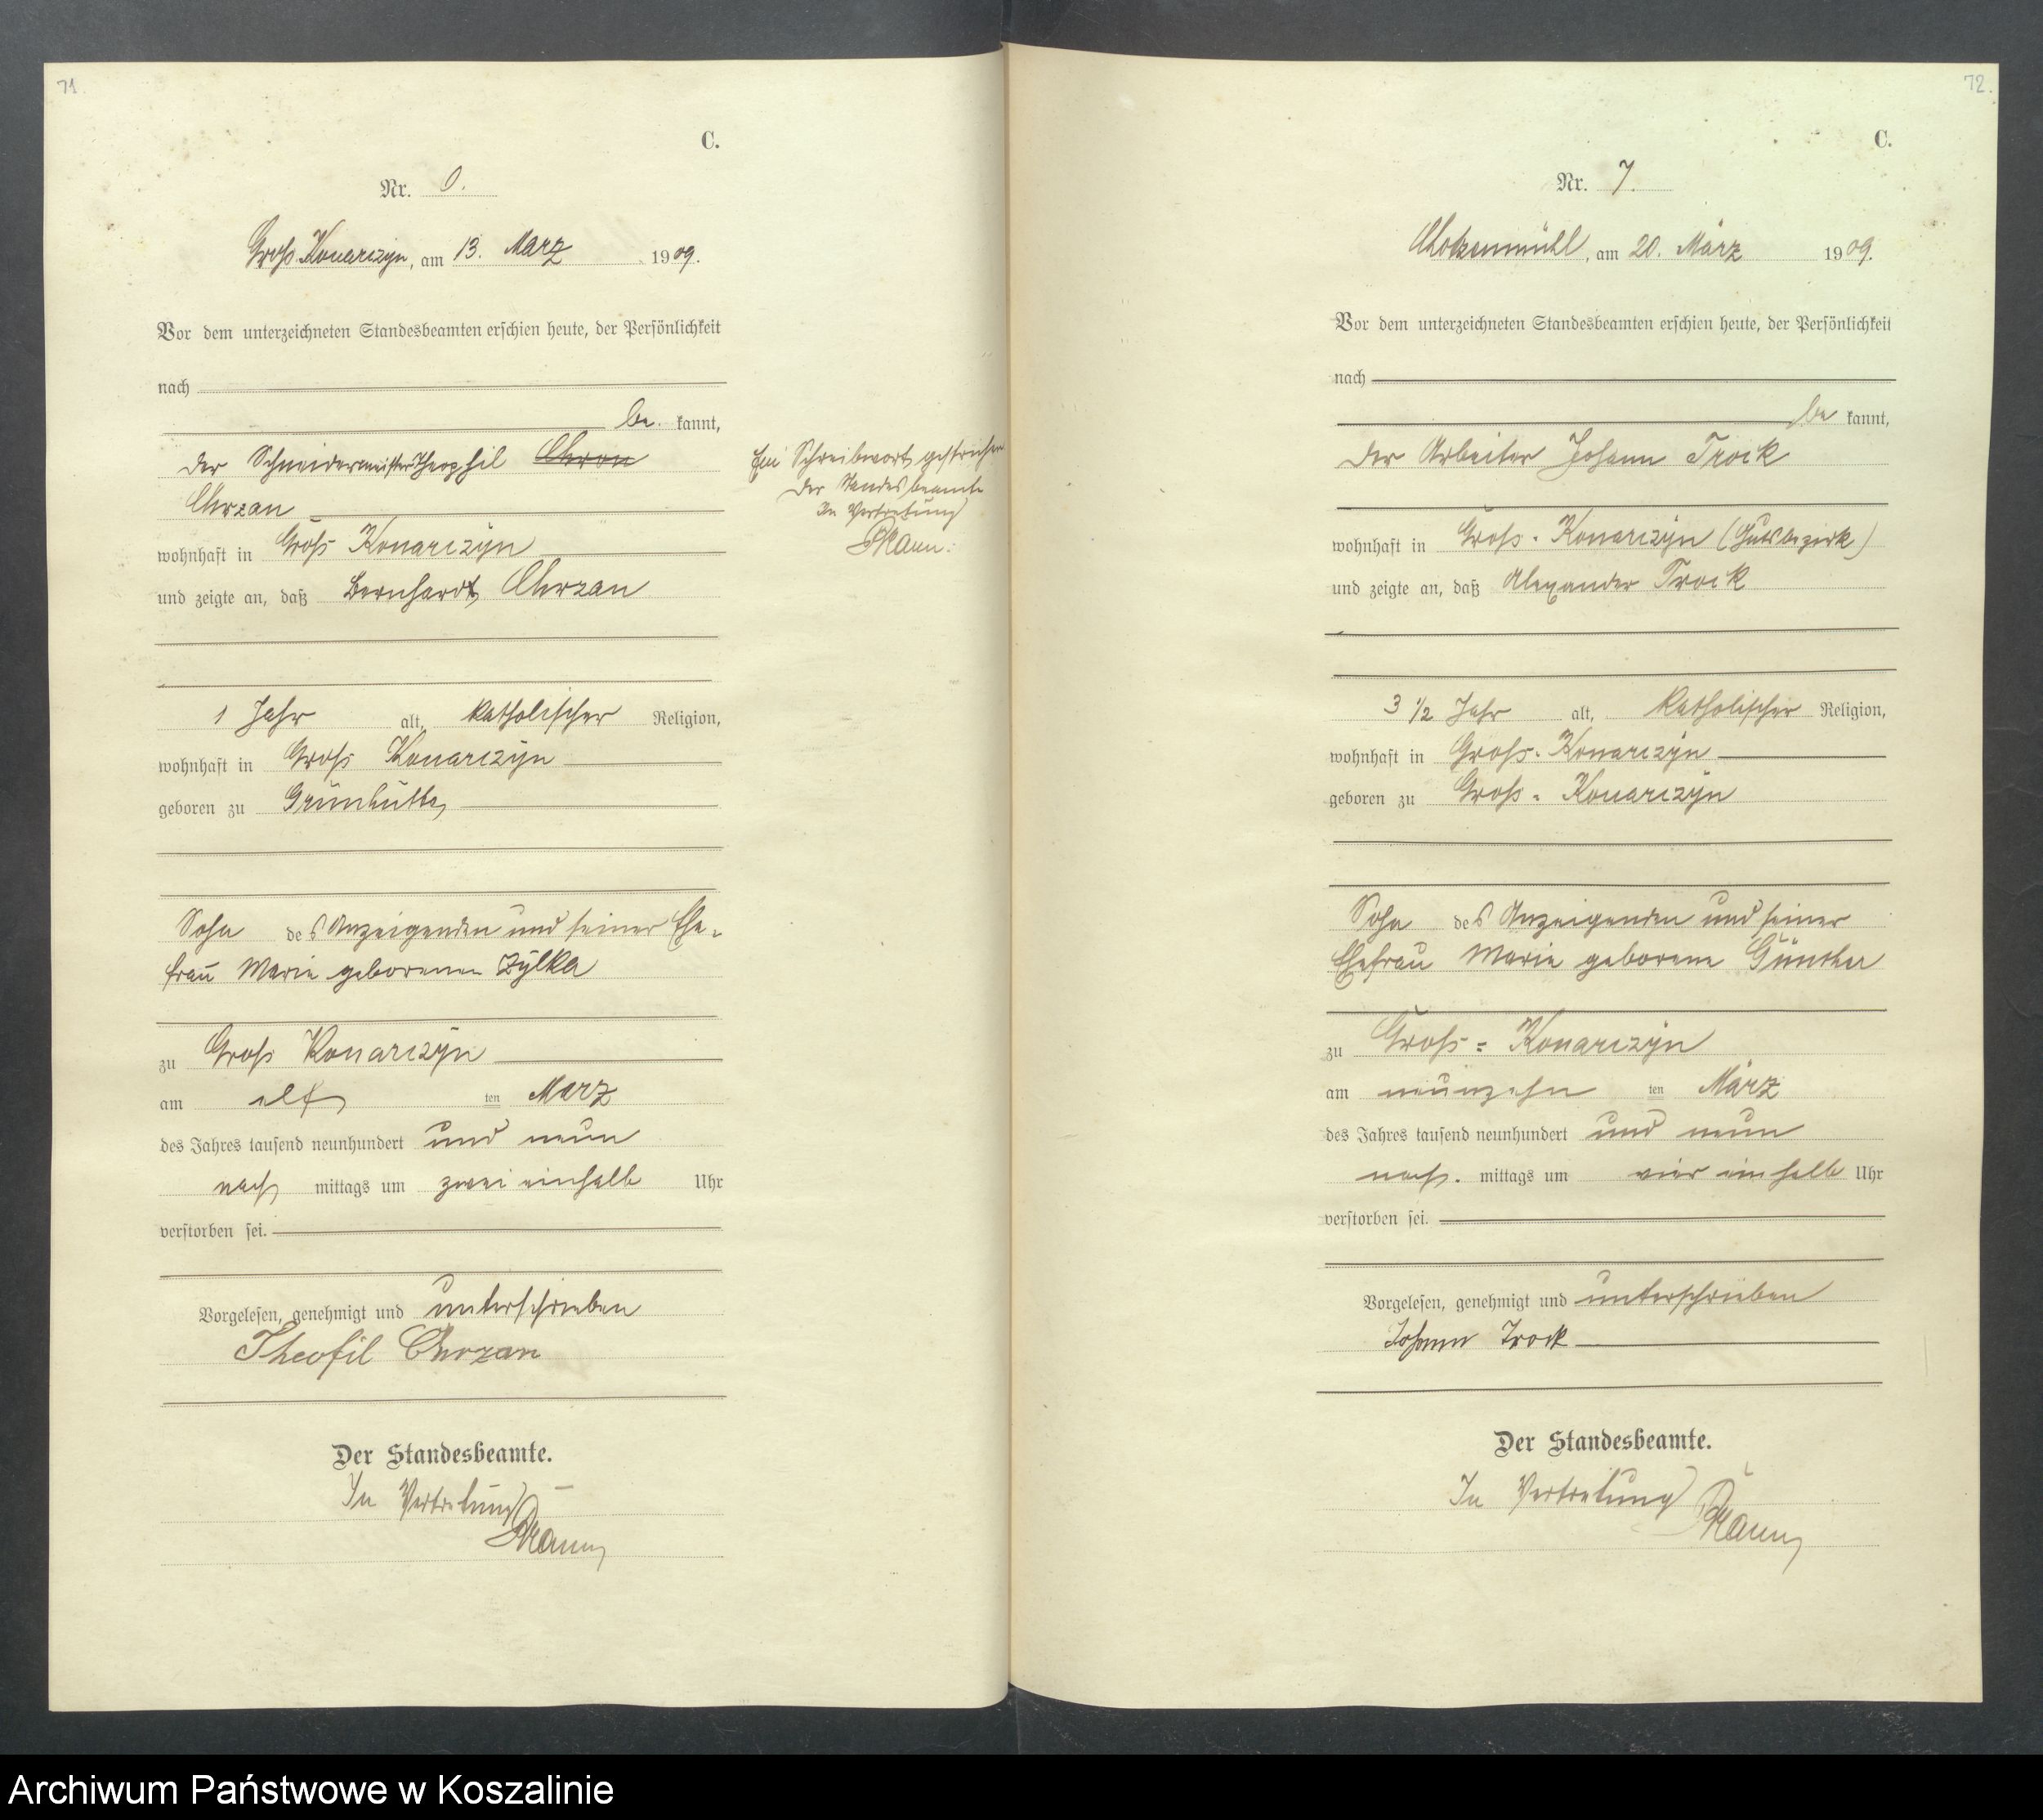 71
C.
Nr. 6.
Groß Konarczyn, am 13. März 1909.
Vor dem unterzeichneten Standesbeamten erschien heute, der Persönlichkeit
nach
be kannt,
der Schneidermeister Theophil Chron
Chrzan
wohnhaft in Groß Konarczyn
und zeigte an, daß Bernhardt Chrzan
1 Jahr alt, katholischer Religion,
wohnhaft in Groß Konarczyn
geboren zu Grünhütte
Sohn des Anzeigenden und seiner Ehe-
frau Marie geborenen Zylka
zu Groß Konarczyn
am elf ten März
des Jahres tausend neunhundert und neun
nach mittags um zwei einhalb Uhr
verstorben sei.
Vorgelesen, genehmigt und unterschrieben
Theofil Chrzan
Der Standesbeamte.
In Vertretung
Ein Schreibwort gestrichen
Der Standesbeamte
In Vertretung
72.
C.
Nr. 7.
Chotzenmühl, am 20. März 1909.
Vor dem unterzeichneten Standesbeamten erschien heute, der Persönlichkeit
nach
be kannt,
der Arbeiter Johann Trock
wohnhaft in Groß-Konarczyn (Gutsbezirk)
und zeigte an, daß Alexander Trock
3 1/2 Jahr alt, katholischer Religion,
wohnhaft in Groß-Konarczyn
geboren zu Groß-Konarczyn
Sohn des Anzeigenden und seiner
Ehefrau Marie geborene Günther
zu Groß-Konarczyn
am neunzehn ten März
des Jahres tausend neunhundert und neun
nach mittags um vier einhalb Uhr
verstorben sei.
Vorgelesen, genehmigt und unterschrieben
Johann Trock
Der Standesbeamte.
In Vertretung
Archiwum Państwowe w Koszalinie